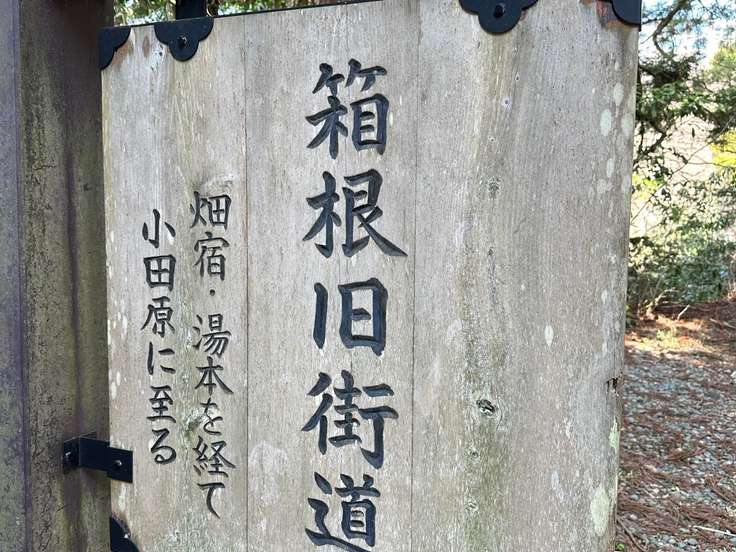 箱根旧街道
畑宿・湯本を経て
小田原に至る